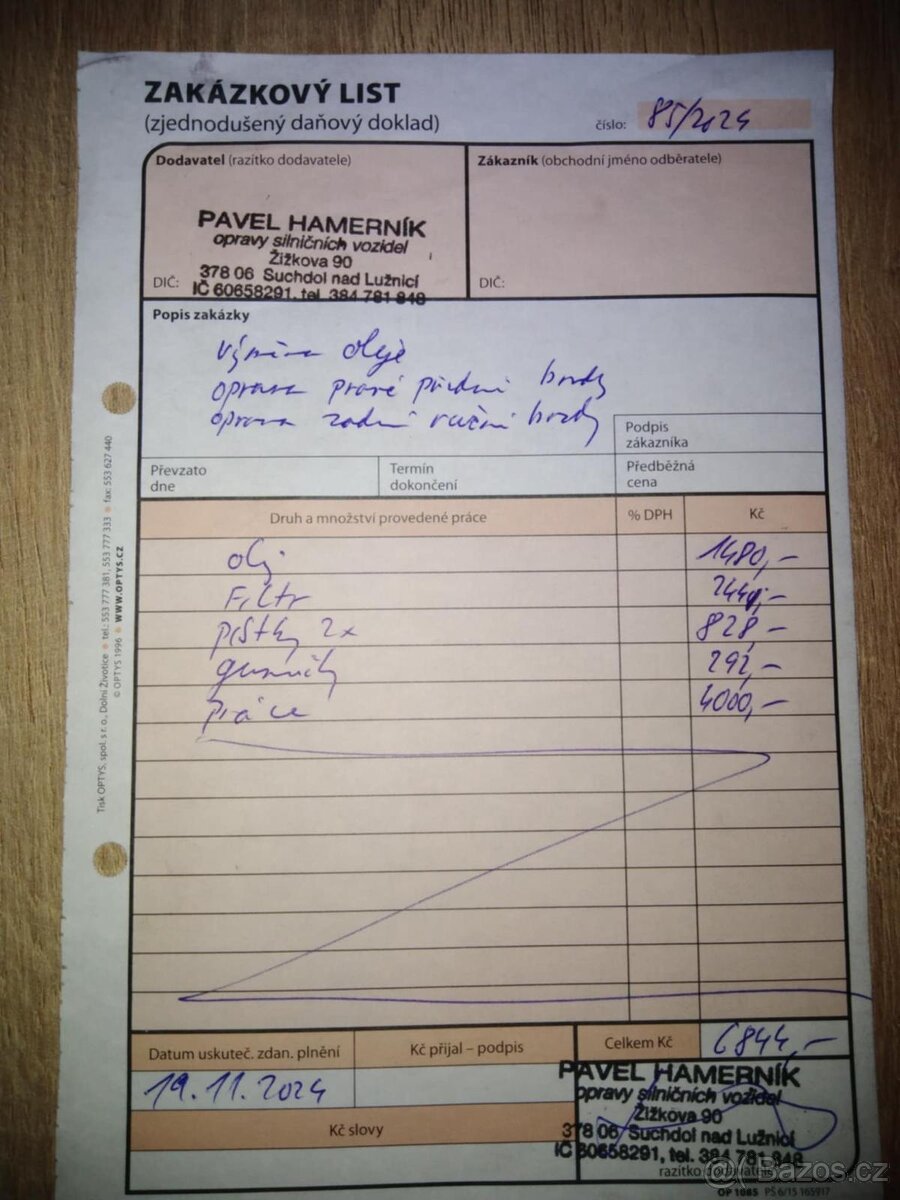 ZAKÁZKOVÝ LIST
(zjednodušený daňový doklad)
číslo: 85/2024
Dodavatel (razítko dodavatele)
Zákazník (obchodní jméno odběratele)
PAVEL HAMERNÍK
opravy silničních vozidel
Žižkova 90
378 06 Suchdol nad Lužnicí
DIČ:
IČ 60658291, tel. 384 781 848
DIČ:
Popis zakázky
výměna oleje
oprava pravé přední brzdy
oprava zadní ruční brzdy
Podpis zákazníka
Převzato dne
Termín dokončení
Předběžná cena
Druh a množství provedené práce % DPH Kč
olej 1480,-
Filtr 244,-
pístky 2x 828,-
gumičky 292,-
Práce 4000,-
Datum uskuteč. zdan. plnění
Kč přijal – podpis
Celkem Kč 6844,-
19.11.2024
Kč slovy
PAVEL HAMERNÍK
opravy silničních vozidel
Žižkova 90
378 06 Suchdol nad Lužnicí
IČ 60658291, tel. 384 781 848
razítko dodavatele
OP 1085 PŠ 6/15 165917
Tisk OPTYS, spol. s r. o., Dolní Životice • tel.: 553 777 381, 553 777 333 • fax: 553 627 440
© OPTYS 1996 • WWW.OPTYS.CZ
Bazos.cz